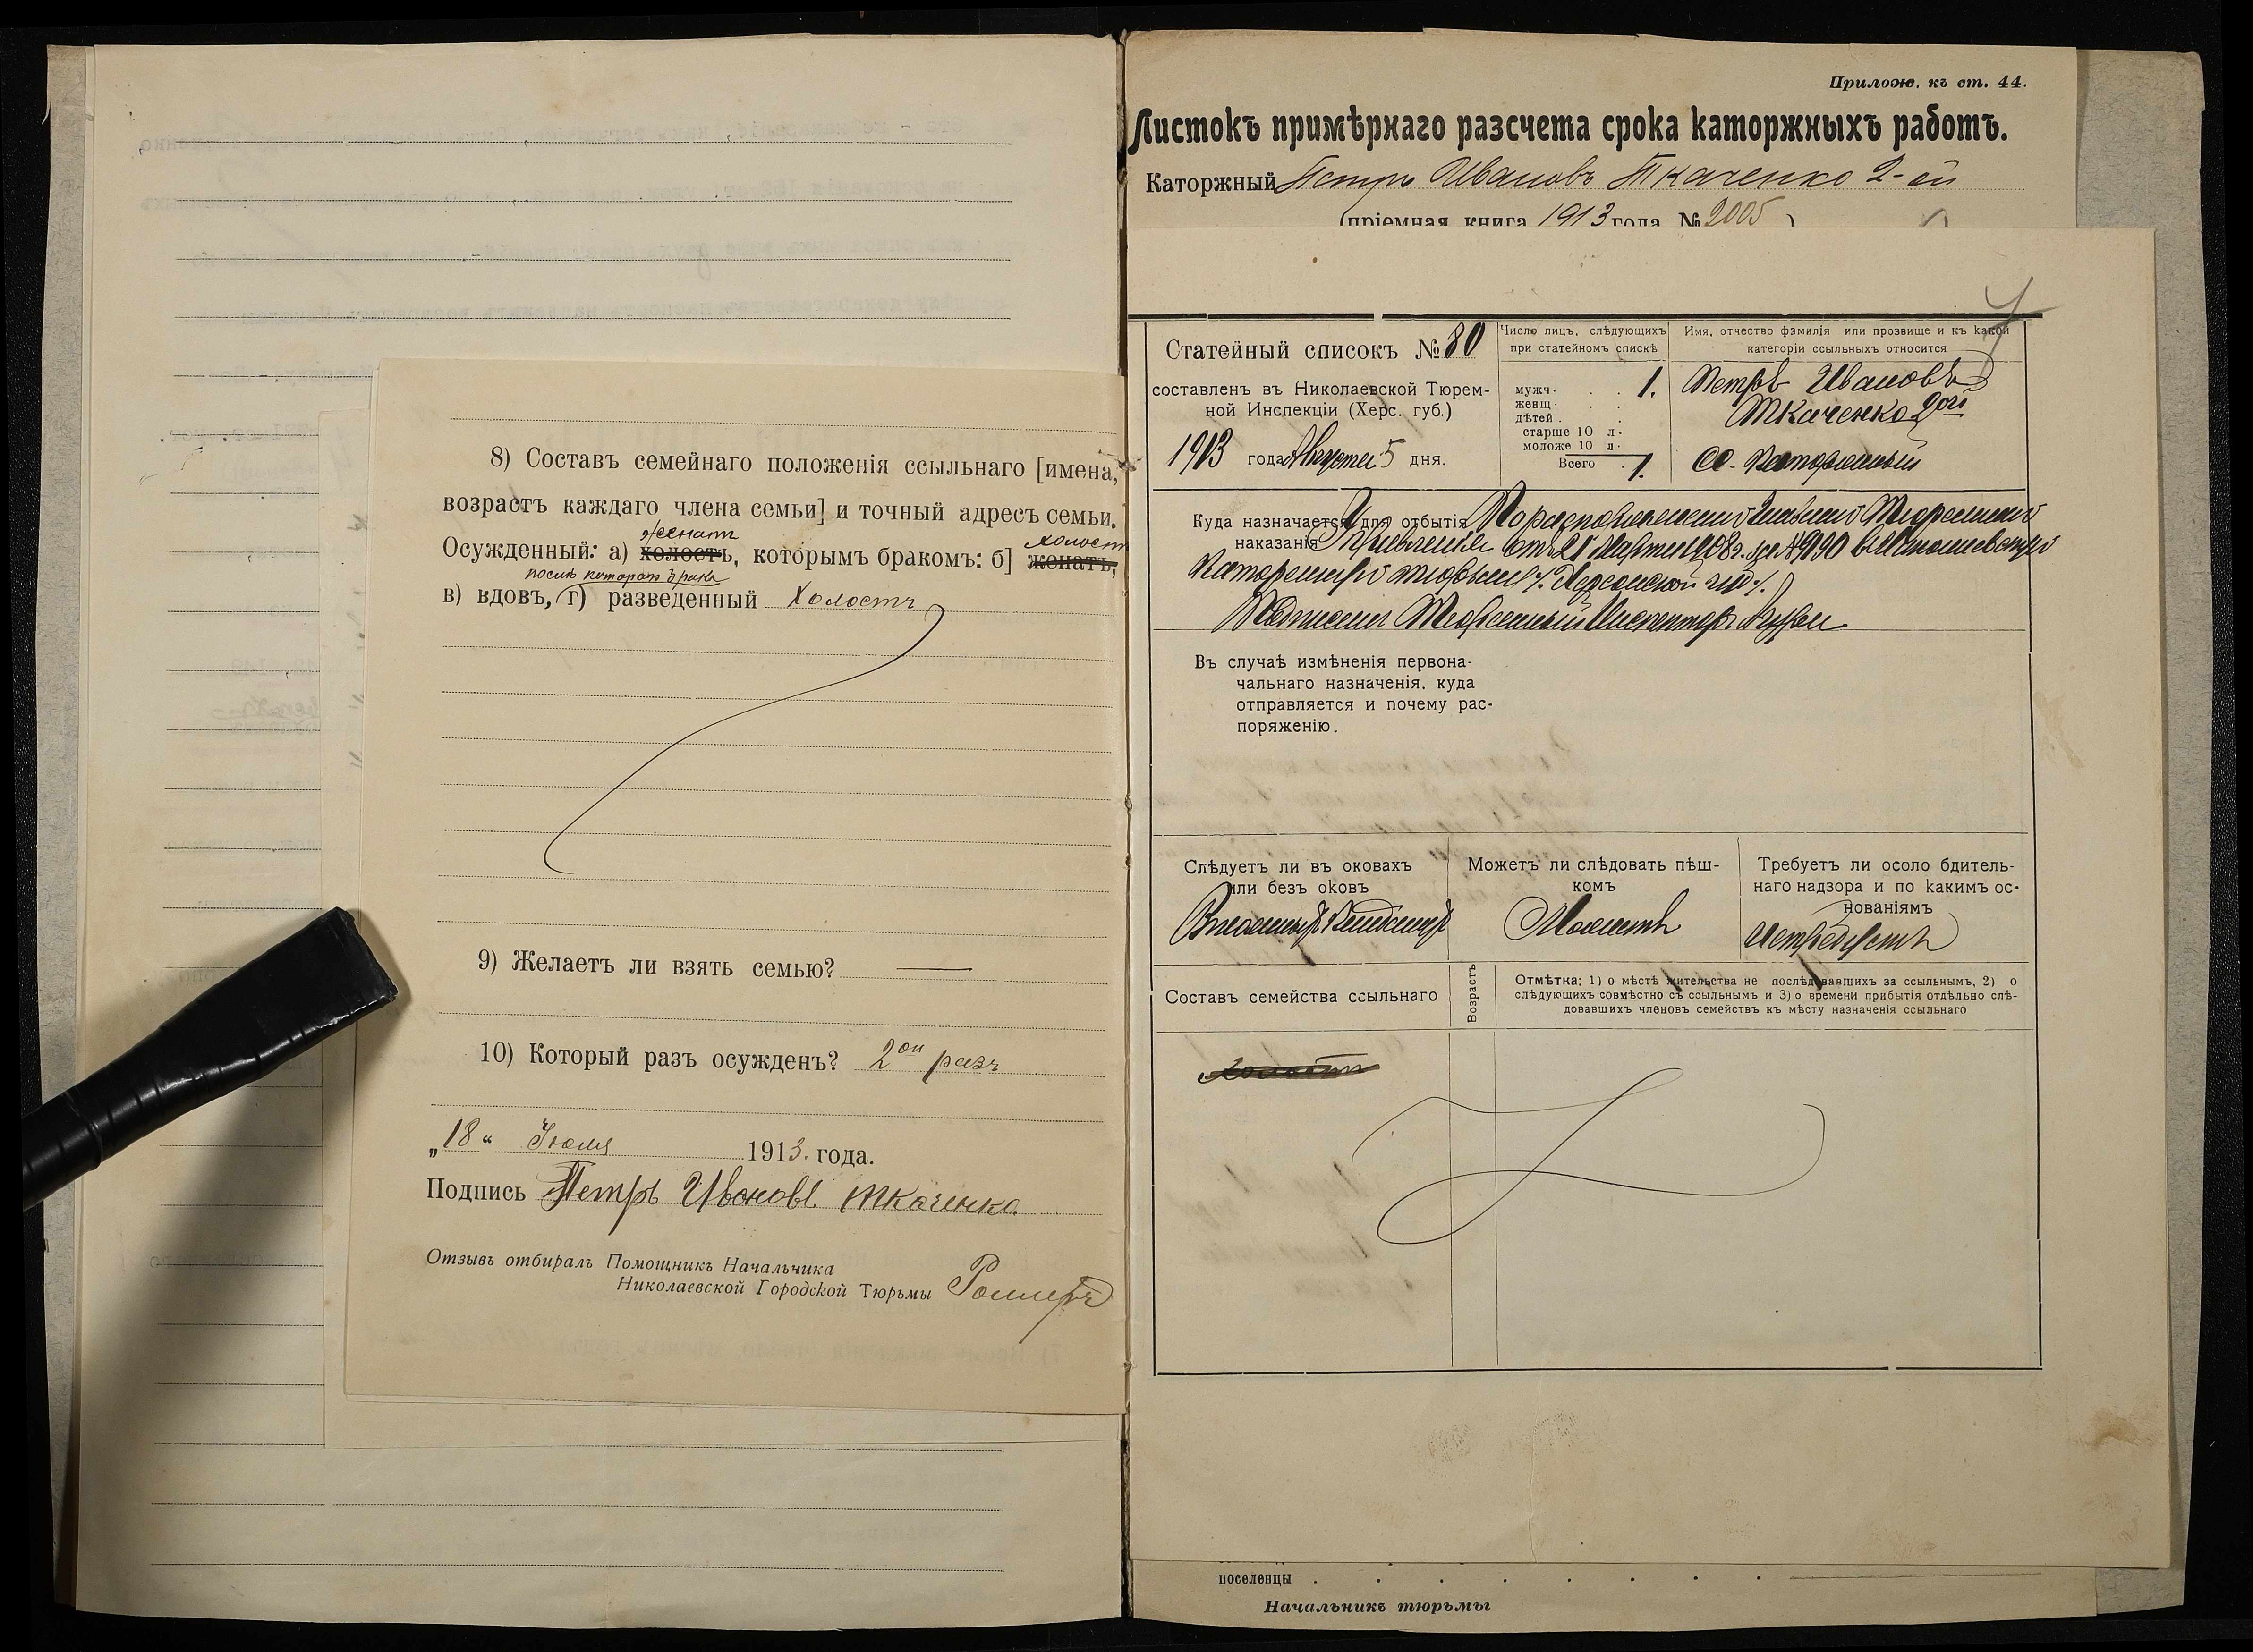 8) Составъ семейнаго положенія ссыльнаго [имена,
возрастъ каждаго члена семьи] и точный адресъ семьи.
женатъ холостъ
Осужденный: а) холостъ, которымъ бракомъ: б] женатъ,
послѣ котораго брака
в) вдовъ, г) разведенный Холостъ
9) Желаетъ ли взять семью? —
10) Который разъ осужденъ? 2ой разъ
„18“ Іюля 1913. года.
Подпись Петръ Ивановъ Ткаченко
Отзывъ отбиралъ Помощникъ Начальника
Николаевской Городской Тюрьмы
Прилож. къ ст. 44.
Листокъ примѣрнаго разсчета срока каторжныхъ работъ.
Каторжный Петръ Ивановъ Ткаченко 2-ой
(пріемная книга 1913 года № 2005)
Статейный списокъ № 80
составленъ въ Николаевской Тюрем-
ной Инспекціи (Херс. губ.)
1913 года Августа 5 дня.
Число лицъ, слѣдующихъ
при статейномъ спискѣ
мужч. . . 1.
женщ. . .
дѣтей . .
старше 10 л.
моложе 10 л.
Всего . 1.
Имя, отчество фамилія или прозвище и къ какой
категоріи ссыльныхъ относится
Петръ Ивановъ
Ткаченко 2ой
Сс. Каторжный
Куда назначается для отбытія По распоряженію Главнаго Тюремнаго
наказанія Управленія отъ 21 Марта 1908 г. за № 990 въ Николаевскую
Каторжную тюрьму /. Херсонской губ /.
Подписалъ Тюремный Инспекторъ
Въ случаѣ измѣненія первона-
чальнаго назначенія, куда
отправляется и почему рас-
поряженію.
Слѣдуетъ ли въ оковахъ
или безъ оковъ
Можетъ ли слѣдовать пѣш-
комъ
Можетъ
Требуетъ ли осоло бдитель-
наго надзора и по какимъ ос-
нованіямъ
Нетребуетъ
Составъ семейства ссыльнаго
Возрастъ
Отмѣтка: 1) о мѣстѣ жительства не послѣдовавшихъ за ссыльнымъ, 2) о
слѣдующихъ совмѣстно съ ссыльнымъ и 3) о времени прибытія отдѣльно слѣ-
довавшихъ членовъ семействъ къ мѣсту назначенія ссыльнаго
Холостъ
поселенцы . . . . . . . .
Начальникъ тюрьмы